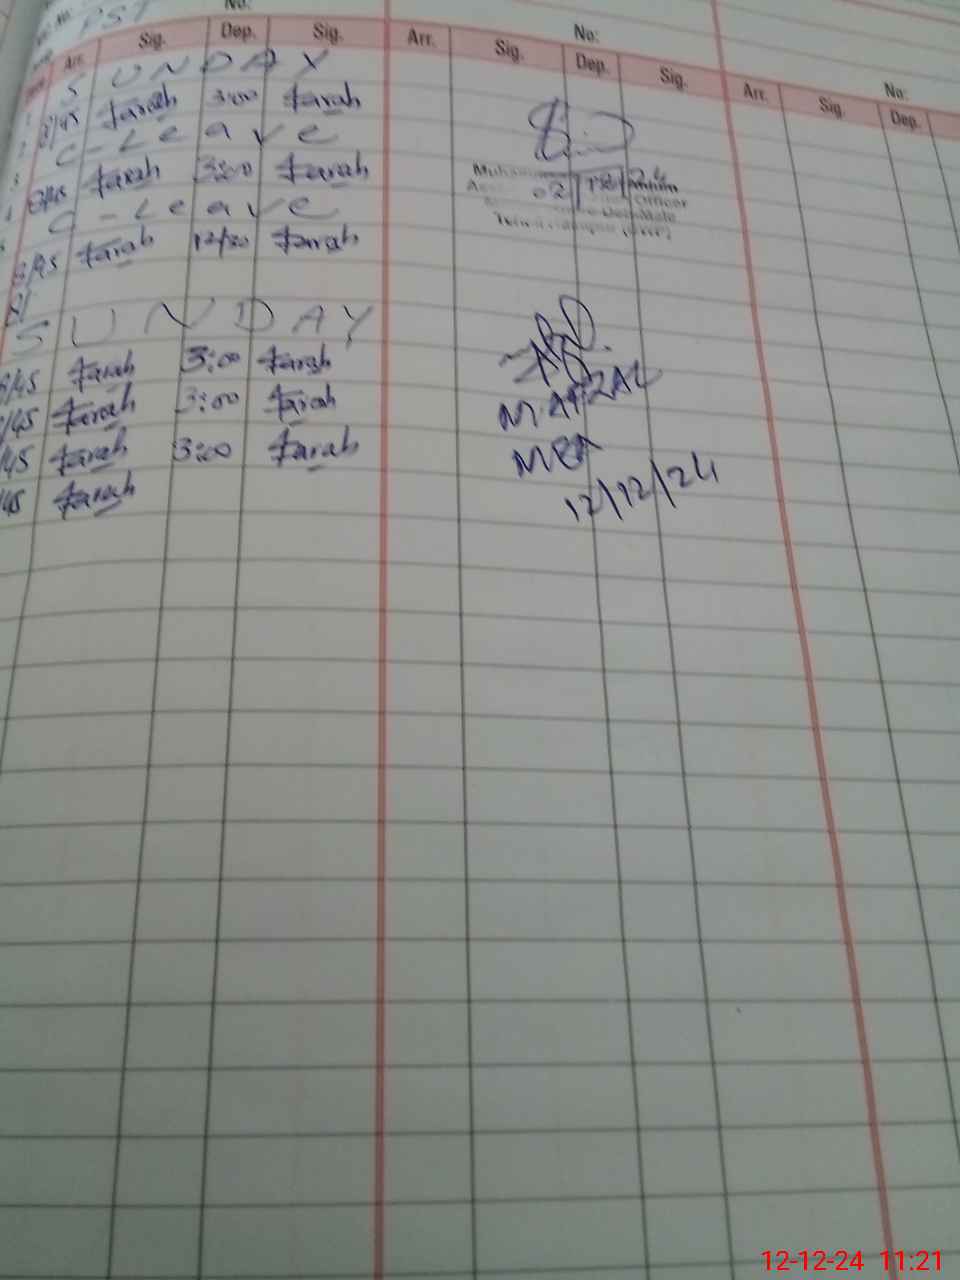 PST
No:
Arr. Sig. Dep. Sig. Arr. Sig. No: Dep. Sig. Arr. Sig. No: Dep.
SUNDAY
8/45 Farah 3:00 Farah
C-Leave
8/45 Farah 3:00 Farah
C-Leave
8/45 Farah 12/30 Farah
SUNDAY
8/45 Farah 3:00 Farah
/45 Farah 3:00 Farah
/45 Farah 3:00 Farah
/45 Farah
02
Officer
MEA
12/12/24
12-12-24 11:21